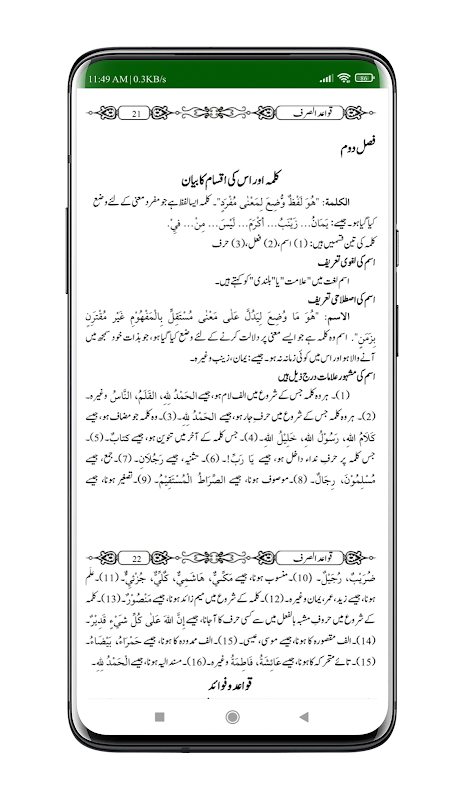 11:49 AM | 0.3KB/s
86
قواعد الصرف 21
فصل دوم
کلمہ اور اس کی اقسام کا بیان
الكلمة: "هُوَ لَفْظٌ وُّضِعَ لِمَعْنًى مُفْرَدٍ"۔ کلمہ ایسا لفظ ہے جو مفرد معنی کے لئے وضع
کیا گیا ہو۔ جیسے: يَمَانُ... زَيْنَبُ... أَكْرَمَ... لَيْسَ... مِنْ... فِيْ.
کلمہ کی تین قسمیں ہیں: (1) اسم، (2) فعل، (3) حرف
اسم کی لغوی تعریف
اسم لغت میں "علامت" یا "بلندی" کو کہتے ہیں۔
اسم کی اصطلاحی تعریف
الاسم: "هُوَ مَا وُضِعَ لِيَدُلَّ عَلَى مَعْنًى مُسْتَقِلٍّ بِالْمَفْهُوْمِ غَيْرِ مُقْتَرِنٍ
بِزَمَنٍ". اسم وہ کلمہ ہے جو ایسے معنی پر دلالت کرنے کے لئے وضع کیا گیا ہو، جو بذات خود سمجھ میں
آنے والا ہو اور اس میں کوئی زمانہ نہ ہو۔ جیسے: یمان، زینب وغیرہ۔
اسم کی مشہور علامات درج ذیل ہیں
(1)۔ ہر وہ کلمہ جس کے شروع میں الف لام ہو، جیسے الحَمْدُ لِلهِ، القَلَمُ، النَّاسُ وغیرہ۔
(2)۔ ہر وہ کلمہ جس کے شروع میں حرف جار ہو، جیسے الحَمْدُ لِلهِ۔ (3)۔ وہ کلمہ جو مضاف ہو، جیسے
كَلَامُ اللهِ، رَسُوْلُ اللهِ، خَلِيْلُ اللهِ۔ (4)۔ جس کلمہ کے آخر میں تنوین ہو، جیسے كتابٌ۔ (5)۔
جس کلمہ پر حرفِ نداء داخل ہو، جیسے يَا رَبُّ!۔ (6)۔ تثنیہ، جیسے رَجُلَانِ۔ (7)۔ جمع، جیسے
مُسْلِمُوْنَ، رِجَالٌ۔ (8)۔ موصوف ہونا، جیسے الصِّرَاطُ الْمُسْتَقِيْمُ۔ (9)۔ تصغیر ہونا، جیسے
قواعد الصرف 22
ضُرَيْبٌ، رُجَيْلٌ۔ (10)۔ منسوب ہونا، جیسے مَكِّيٌّ، هَاشِمِيٌّ، كُلِّيٌّ، جُزْئِيٌّ۔ (11)۔ عَلَم
ہونا، جیسے زید، عمر، یمان وغیرہ۔ (12)۔ کلمہ کے شروع میں میم زائد ہونا، جیسے مَنْصُوْرٌ۔ (13)۔ کلمہ
کے شروع میں حروفِ مشبہ بالفعل میں سے کسی حرف کا آجانا، جیسے إِنَّ اللهَ عَلٰى كُلِّ شَيْءٍ قَدِيْرٌ۔
(14)۔ الف مقصورہ کا ہونا، جیسے موسی، عیسی۔ (15)۔ الف ممدودہ کا ہونا، جیسے حَمْرَاءُ، بَيْضَاءُ۔
(15)۔ تائے متحرکہ کا ہونا، جیسے عَائِشَةُ، فَاطِمَةُ وغیرہ۔ (16)۔ مسند الیہ ہونا، جیسے الْحَمْدُ لِلهِ۔
قواعد و فوائد